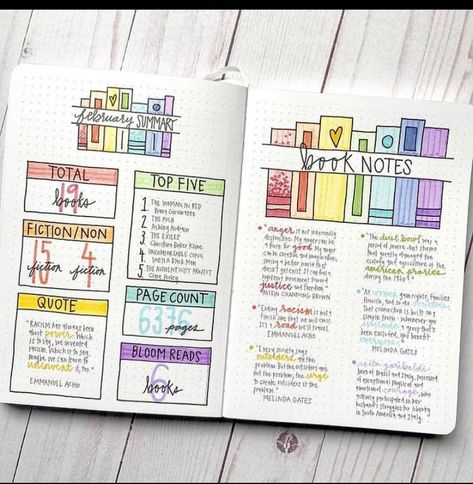 february SUMMARY
TOTAL
19
books
FICTION/NON
15 4
fiction fiction
QUOTE
"RACISM HAS ALWAYS been
about power. Which
is to say, we
invented racism. We can
uninvent it, too."
EMMANUEL ACHO
TOP FIVE
1. THE WOMAN IN RED
2. THE PUSH
Ashley Audrain
3. THE EXILES
Christina Baker Kline
4. UNCOMFORTABLE CONV.
WITH A BLACK MAN
5. THE AUTHENTICITY PROJECT
Clare Pooley
PAGE COUNT
6376
pages
BLOOM READS
6
books
book NOTES
"anger is not inherently
destructive. My anger can
be a force for good. My anger
can be creative and imaginative,
seeing a better world that
doesn't yet exist. It can fuel a
righteous movement toward
justice and freedom."
AUSTIN CHANNING BROWN
"Ending racism is not a
finish line that we will cross.
It's a road we'll travel."
EMMANUEL ACHO
outsiders
the problem, the urge
to create outsiders is the
problem."
MELINDA GATES
The dust bowl was a
period of severe dust storms
that greatly damaged the
ecology and agriculture of the
american prairies
during the 1930s.
"As women gain rights, families
flourish, and so do societies.
That connection is built on a
simple truth: Whenever you
include a group that's
been excluded, you benefit
everyone."
MELINDA GATES
anita garibaldi:
courage, who
actively participated in her
husband's struggles for liberty
in South America and Italy.